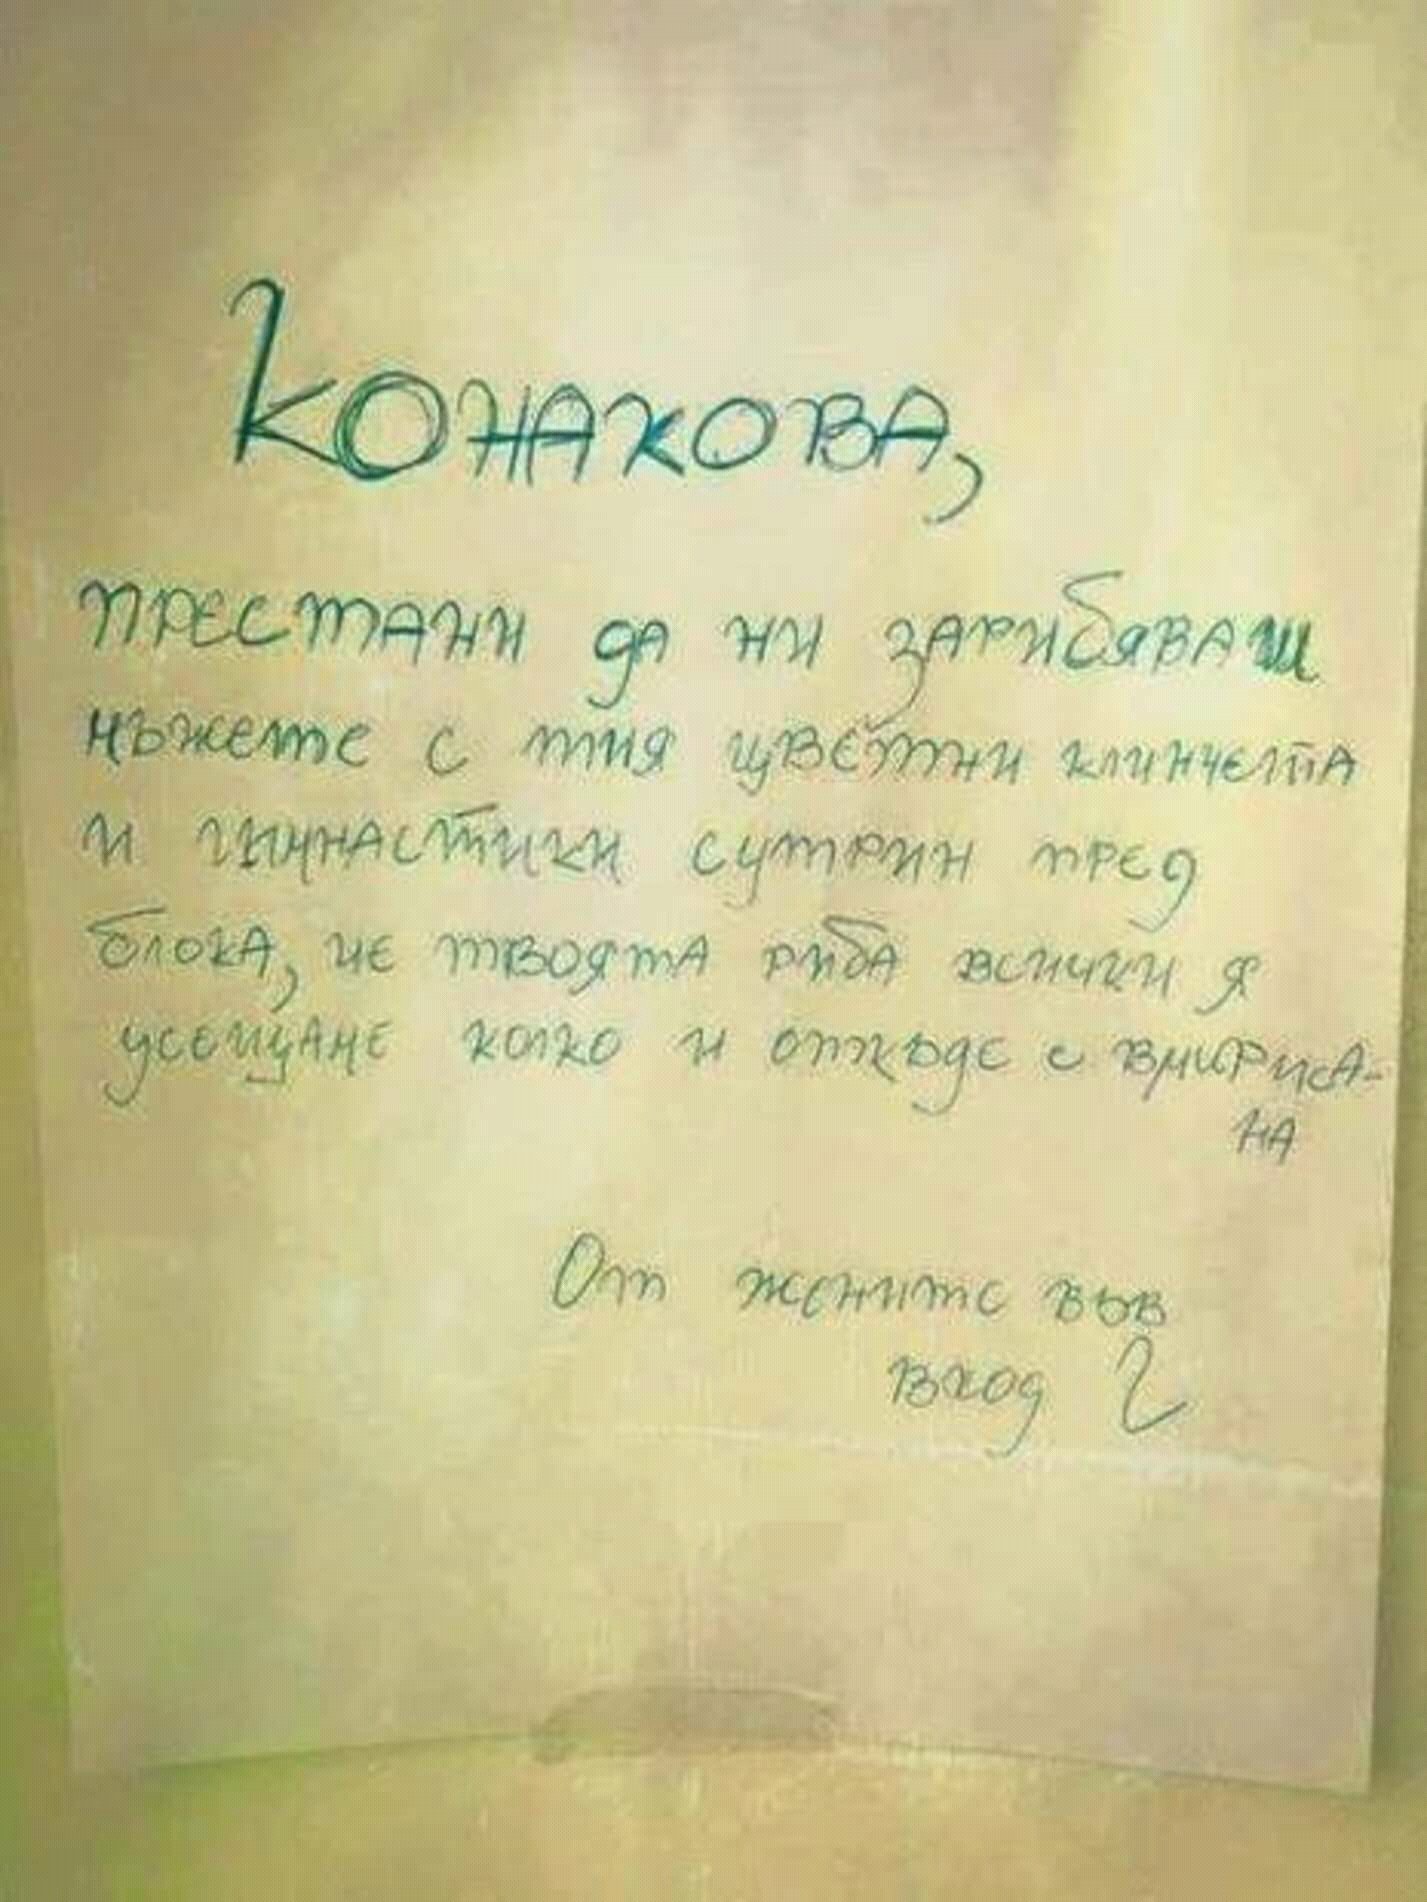 Конакова,
престани да ни зарибяваш
мъжете с тия цветни клинчета
и гимнастики сутрин пред
блока, че твоята риба всички я
усещаме колко и откъде е вмириса-
на
От жените във
вход Г